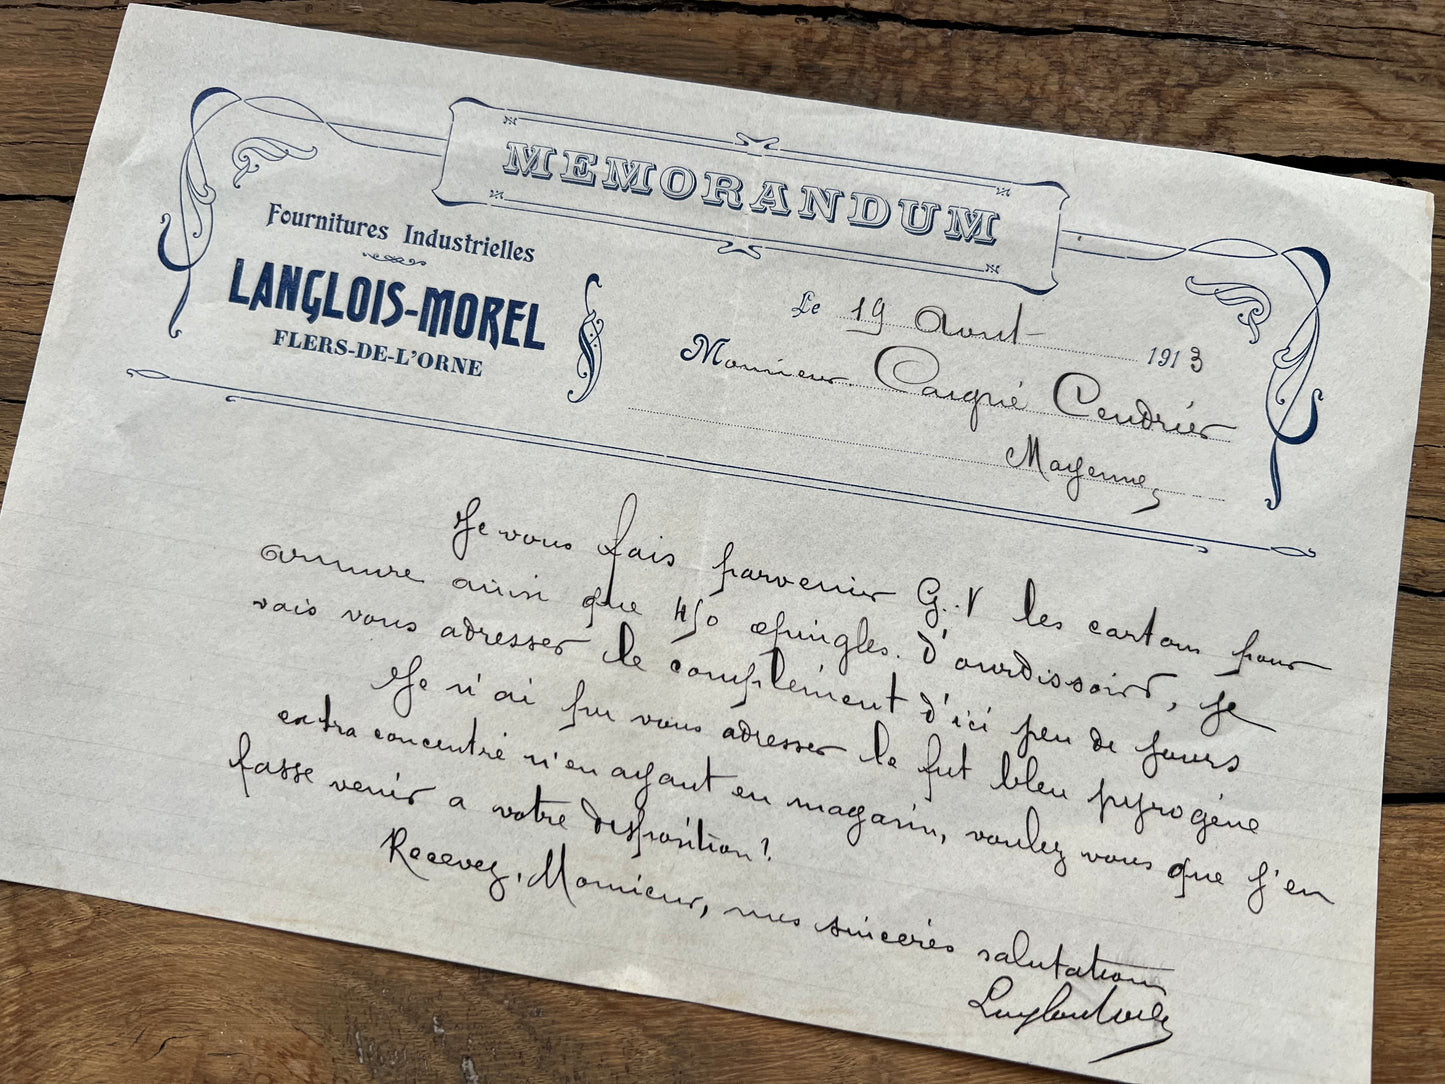 MEMORANDUM
Fournitures Industrielles
LANGLOIS-MOREL
FLERS-DE-L'ORNE
Le 19 Aout 1913
Monsieur Caigné Cendrier
Mayenne
Je vous fais parvenir G.V les cartons pour
armure ainsi que 450 épingles d'ourdissoirs, je
vais vous adresser le complément d'ici peu de jours
Je n'ai pu vous adresser le fut bleu pyrogène
extra concentré n'en ayant en magasin, voulez vous que j'en
fasse venir a votre disposition?
Recevez, Monsieur, mes sincères salutations